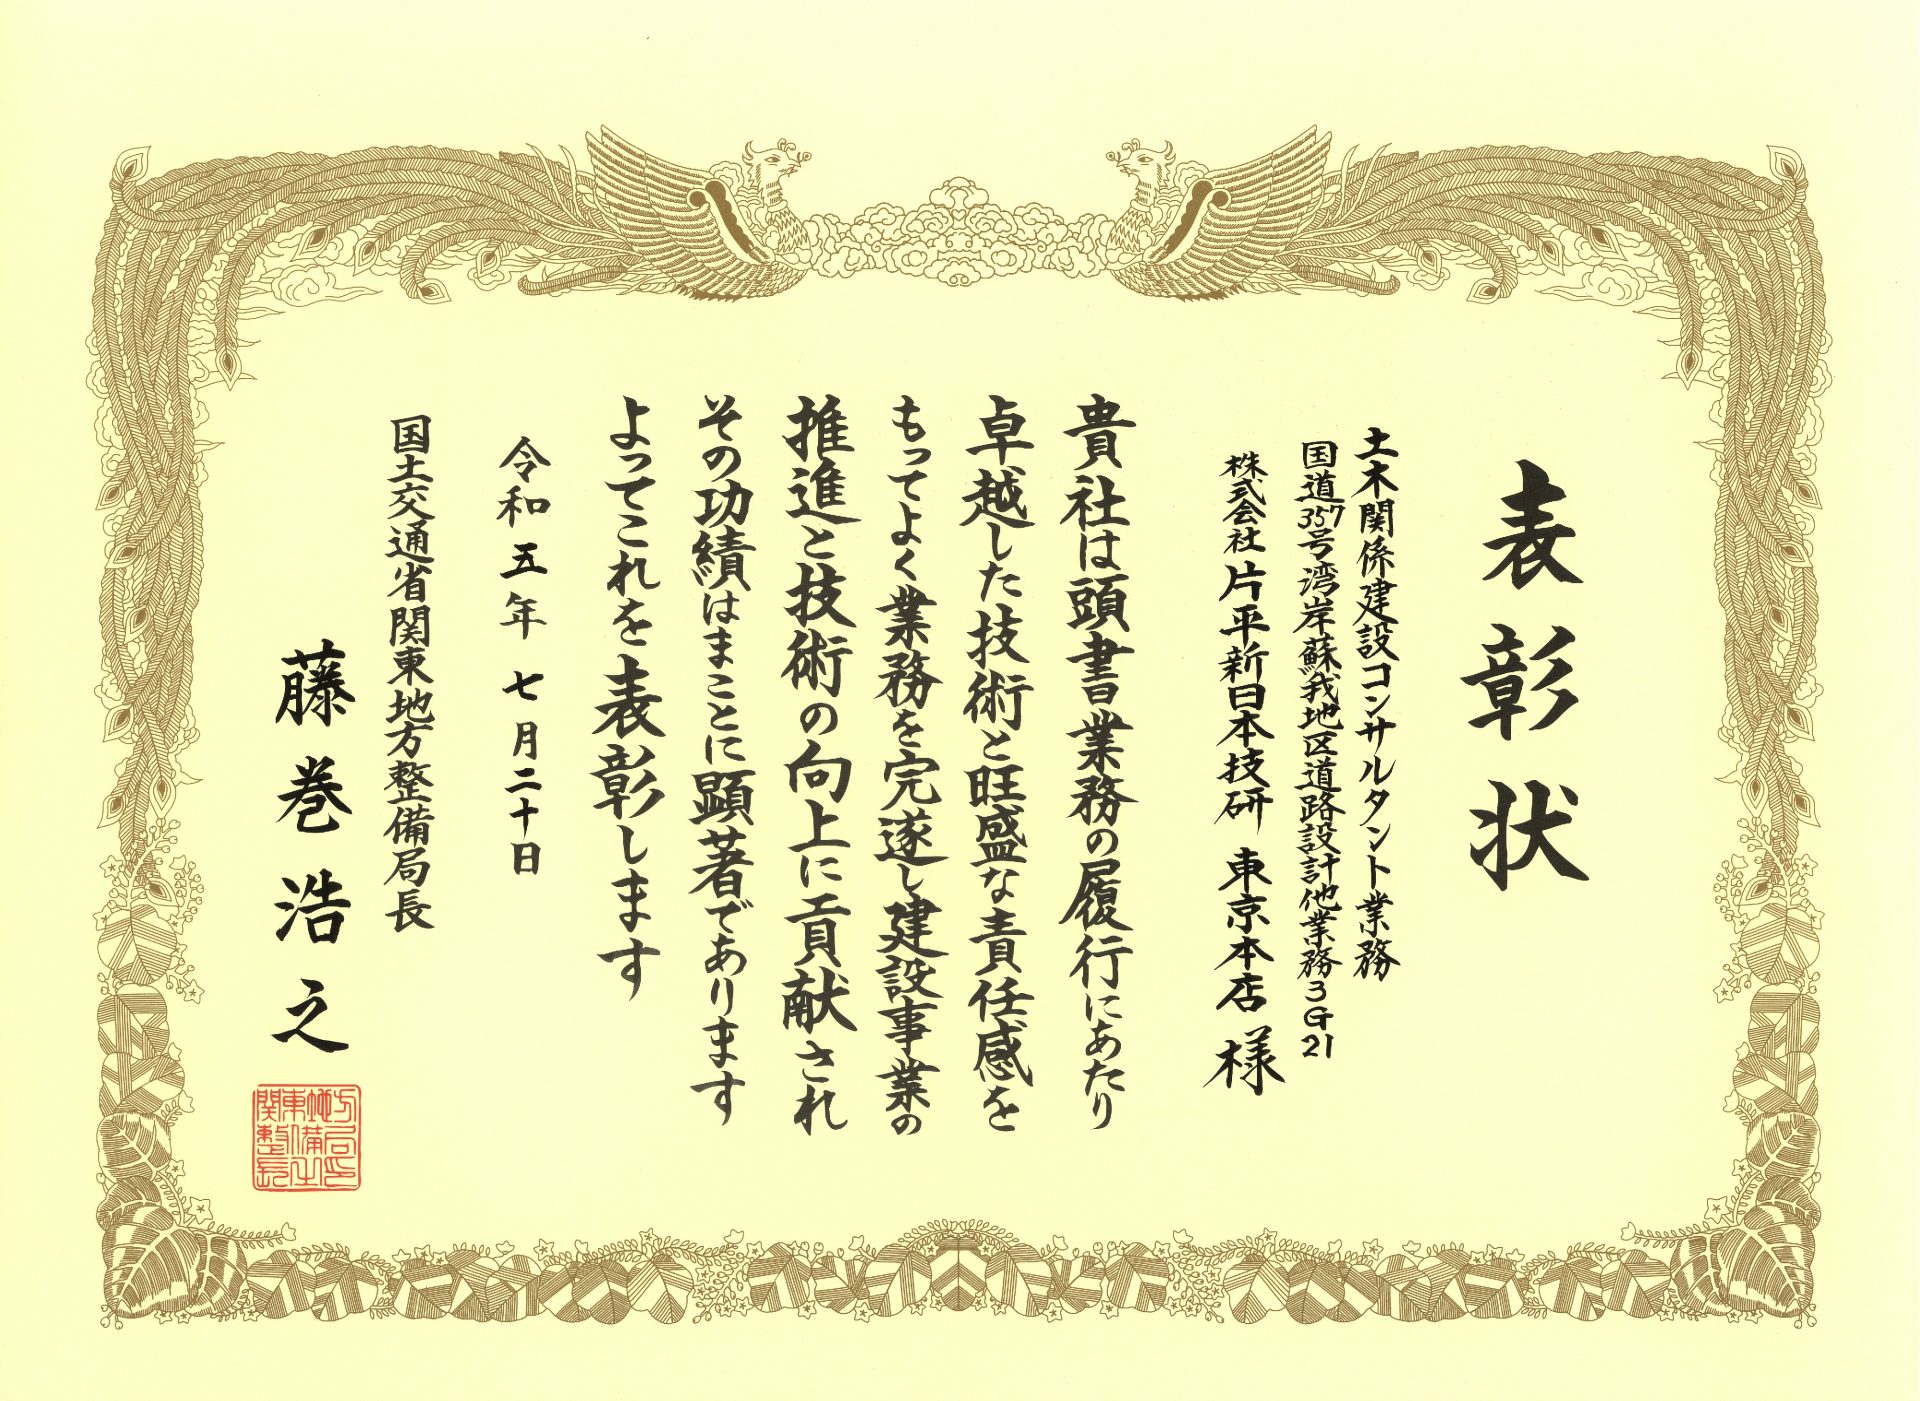 表彰状
土木関係建設コンサルタント業務
国道357号湾岸蘇我地区道路設計他業務3G21
株式会社片平新日本技研 東京本店 様
貴社は頭書業務の履行にあたり
卓越した技術と旺盛な責任感を
もってよく業務を完遂し建設事業の
推進と技術の向上に貢献され
その功績はまことに顕著であります
よってこれを表彰します
令和五年七月二十日
国土交通省関東地方整備局長
藤巻浩之